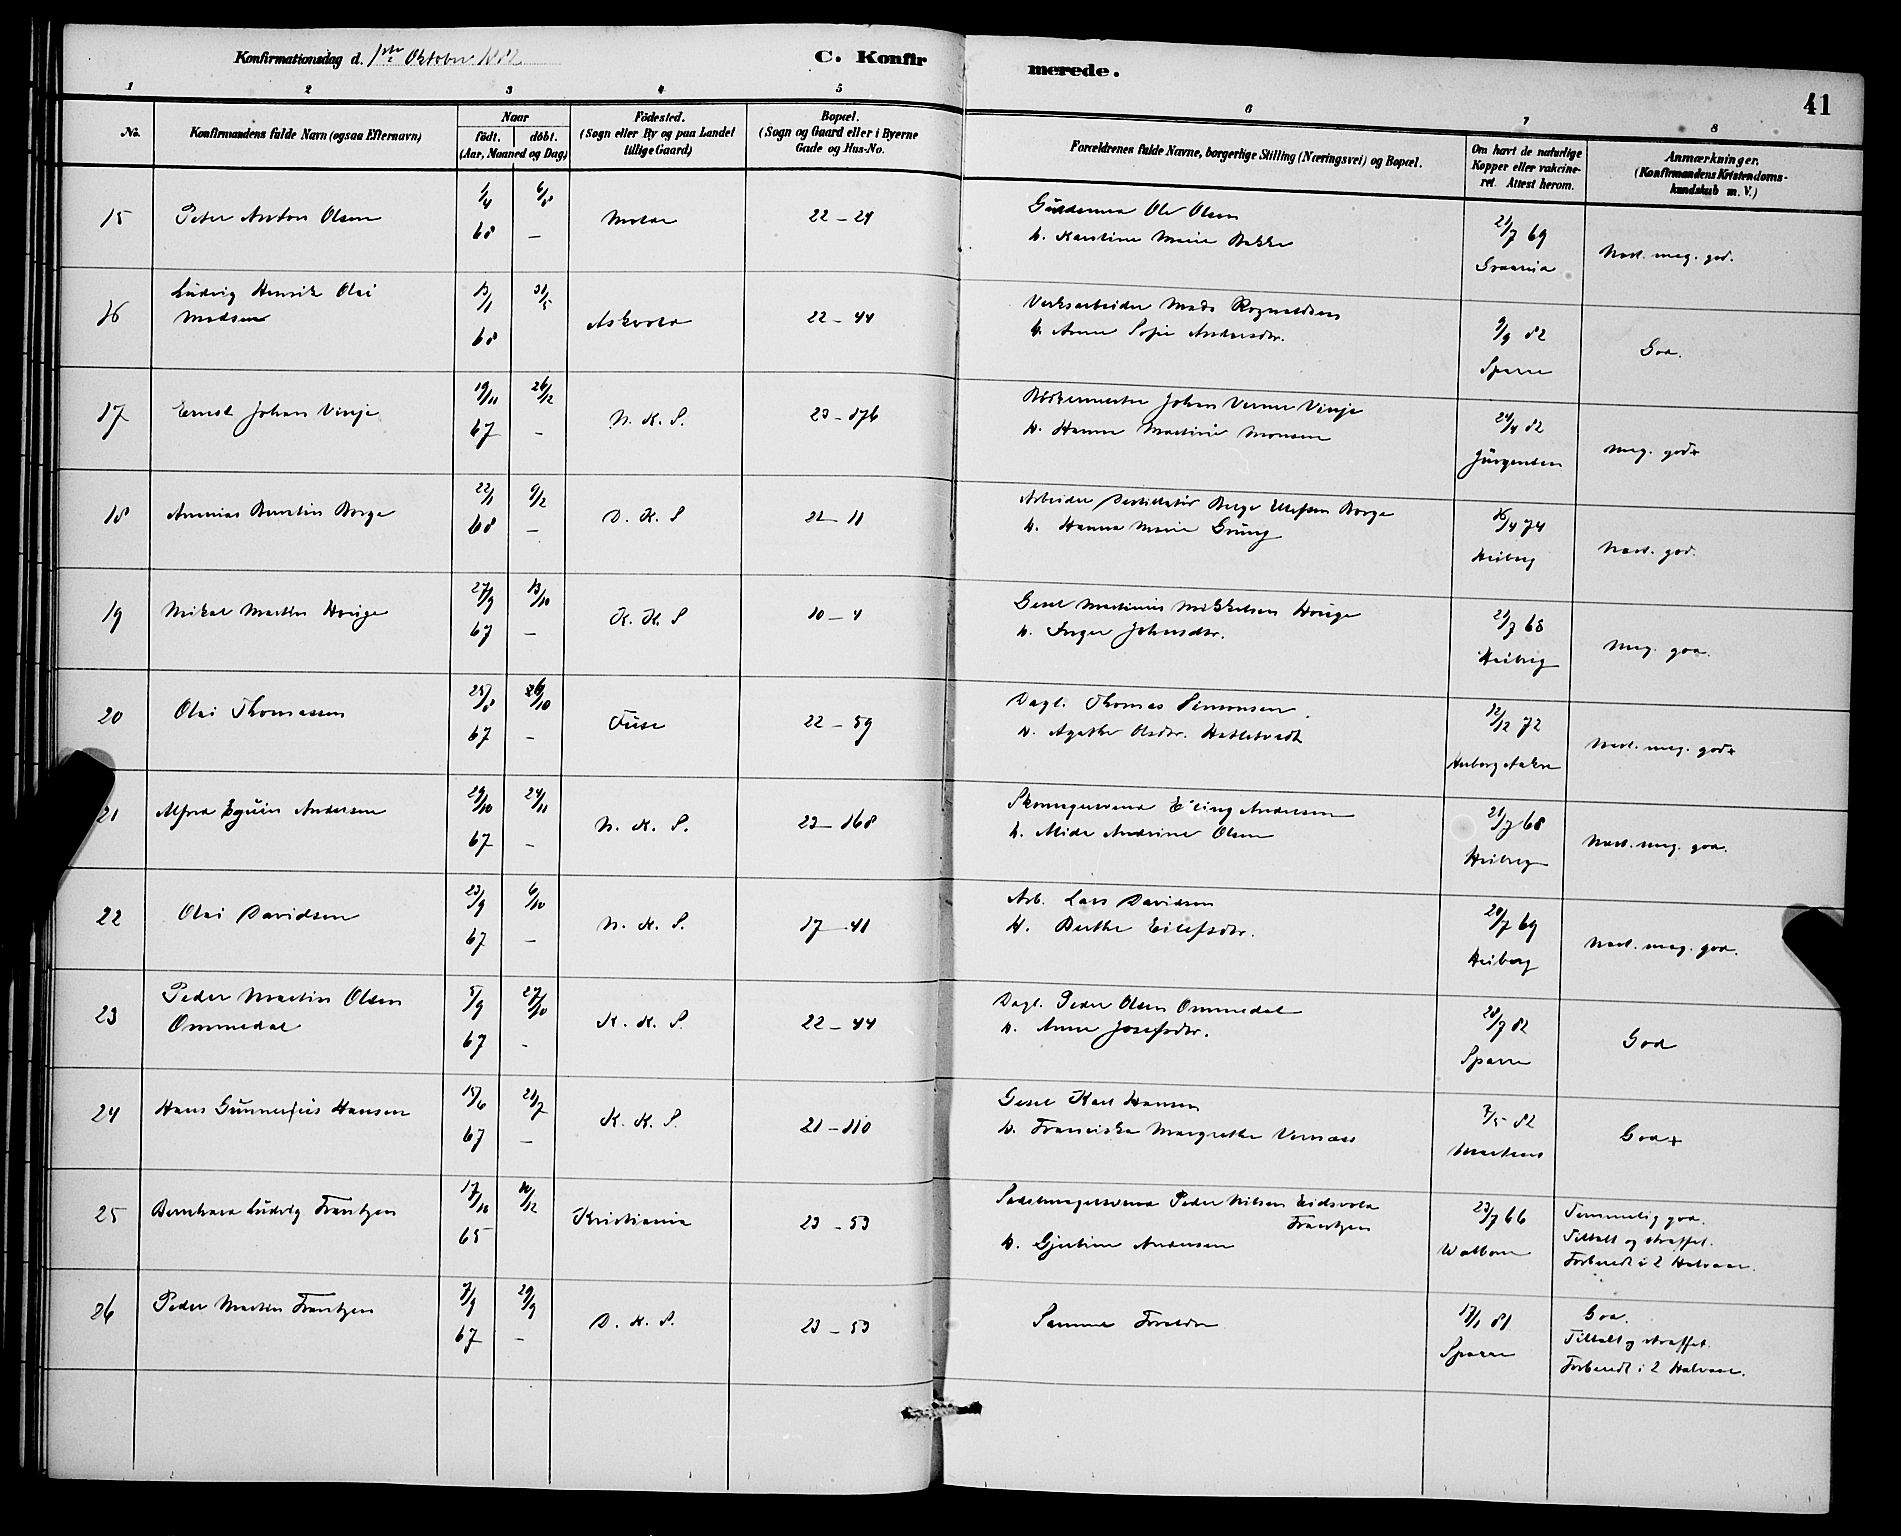 Konfirmationsdag d. 1ste Oktober 1882
C. Konfirmerede.
41
1 2 3 4 5 6 7 8
No.
Konfirmandens fulde Navn (ogsaa Efternavn)
Naar
födt. döbt.
(Aar, Maaned og Dag)
Födested.
(Sogn eller By og paa Landet
tillige Gaard)
Bopæl.
(Sogn og Gaard eller i Byerne
Gade og Hus-No.
Forældrenes fulde Navne, borgerlige Stilling (Næringsvei) og Bopæl.
Om havt de naturlige
Kopper eller vakcine-
ret. Attest herom.
Anmærkninger.
(Konfirmandens Kristendoms-
kundskab m. V.)
15 Peter Anton Olsen 1/4 68 6/8 - Molde 22-24
Ole Olsen
h. Karoline Marie Bakke
21/7 69
Næst. meg. god.
16 Ludvig Henrik Olai
Madsen
13/1 68 31/5 Askvold 22-44
Verksarbeider Mads Rognaldsen
h. Anne Sofie Andersdtr.
9/9 82
Sparre
God.
17 Ernst Johan Vinje 19/11 67 26/12 - N. K. S. 23-176
Bödkermester Johan Verner Vinje
h. Hanne Martine Monsen
24/4 82
Jürgensen
Meg. god+
18 Ananias Berntin Borge 22/1 68 9/2 - D. K. S 21-11
Arbeider Borge
h. Hanna Marie Grung
16/4 74
Heiberg
Næst. god.
19 Mikal Martin Hauge 27/9 67 13/10 - K. K. S 10-4
Gesel Martinus Mikkelsen Hauge
h. Inger Johnsdtr.
21/7 68
Heiberg
Meg. god.
20 Olai Thomassen 25/8 67 26/10 - Fuse 22-59
Dagl. Thomas Simonsen
h. Agathe Olsdtr. Hatletvedt
12/12 72
Næst. meg. god+
21 Alfred Andersen 29/10 67 24/11 - N. K. S. 23-168
Skomagersvend Andersen
h. Andrine Olsen
21/7 68
Heiberg
Næst. meg. god.
22 Olai Davidsen 23/9 67 6/10 - N. K. S. 17-41
Arb. Lars Davidsen
h. Berthe Eilefsdtr.
20/7 69
Heiberg
Næst. meg. god.
23 Peder Martin Olsen
Ommedal
5/9 67 27/10 - K. K. S. 22-44
Dagl. Peder Olsen Ommedal
h. Anne Josefsdtr.
28/7 82
Sparre
God
24 Hans Gunnerius Hansen 15/6 67 21/7 - K. K. S. 21-110
Gesel Karl Hansen
h. Franciska Margrethe
7/5 82
Martens
God+
25 Bernhard Ludvig Frantzen 17/10 65 10/12 Kristiania 23-53
Sadelmagersvend Peder Nilsen Eidsvold
Frantzen
h. Gjertine Andersen
23/7 66
Walborn
Temmelig god.
Tiltalt og straffet.
Forberedt i 2 Halvaar.
26 Peder Martin Frantzen 7/9 67 29/9 - D. K. S. 23-53
Samme Foreldre
17/1 81
Sparre
God.
Tiltalt og straffet.
Forberedt i 2 Halvaar.